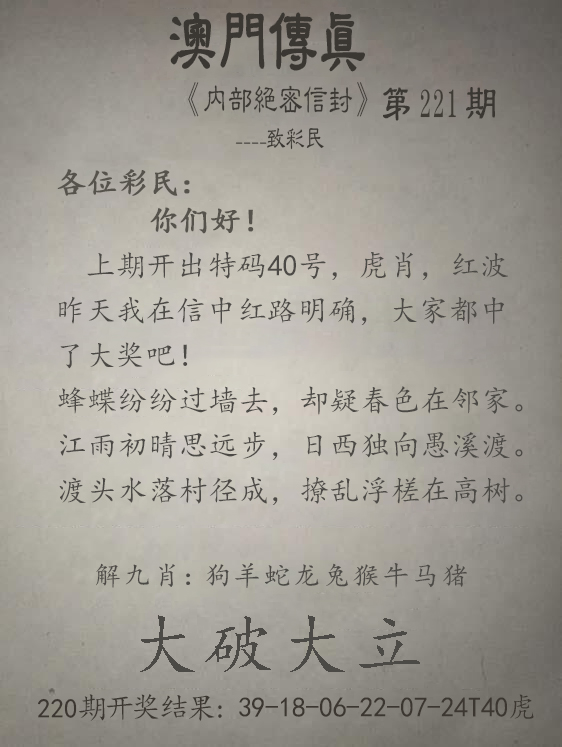 澳門傳眞
《内部絕密信封》第221期
----致彩民
各位彩民：
你们好！
上期开出特码40号，虎肖，红波
昨天我在信中红路明确，大家都中
了大奖吧！
蜂蝶纷纷过墙去，却疑春色在邻家。
江雨初晴思远步，日西独向愚溪渡。
渡头水落村径成，撩乱浮槎在高树。
解九肖：狗羊蛇龙兔猴牛马猪
大破大立
220期开奖结果：39-18-06-22-07-24T40虎